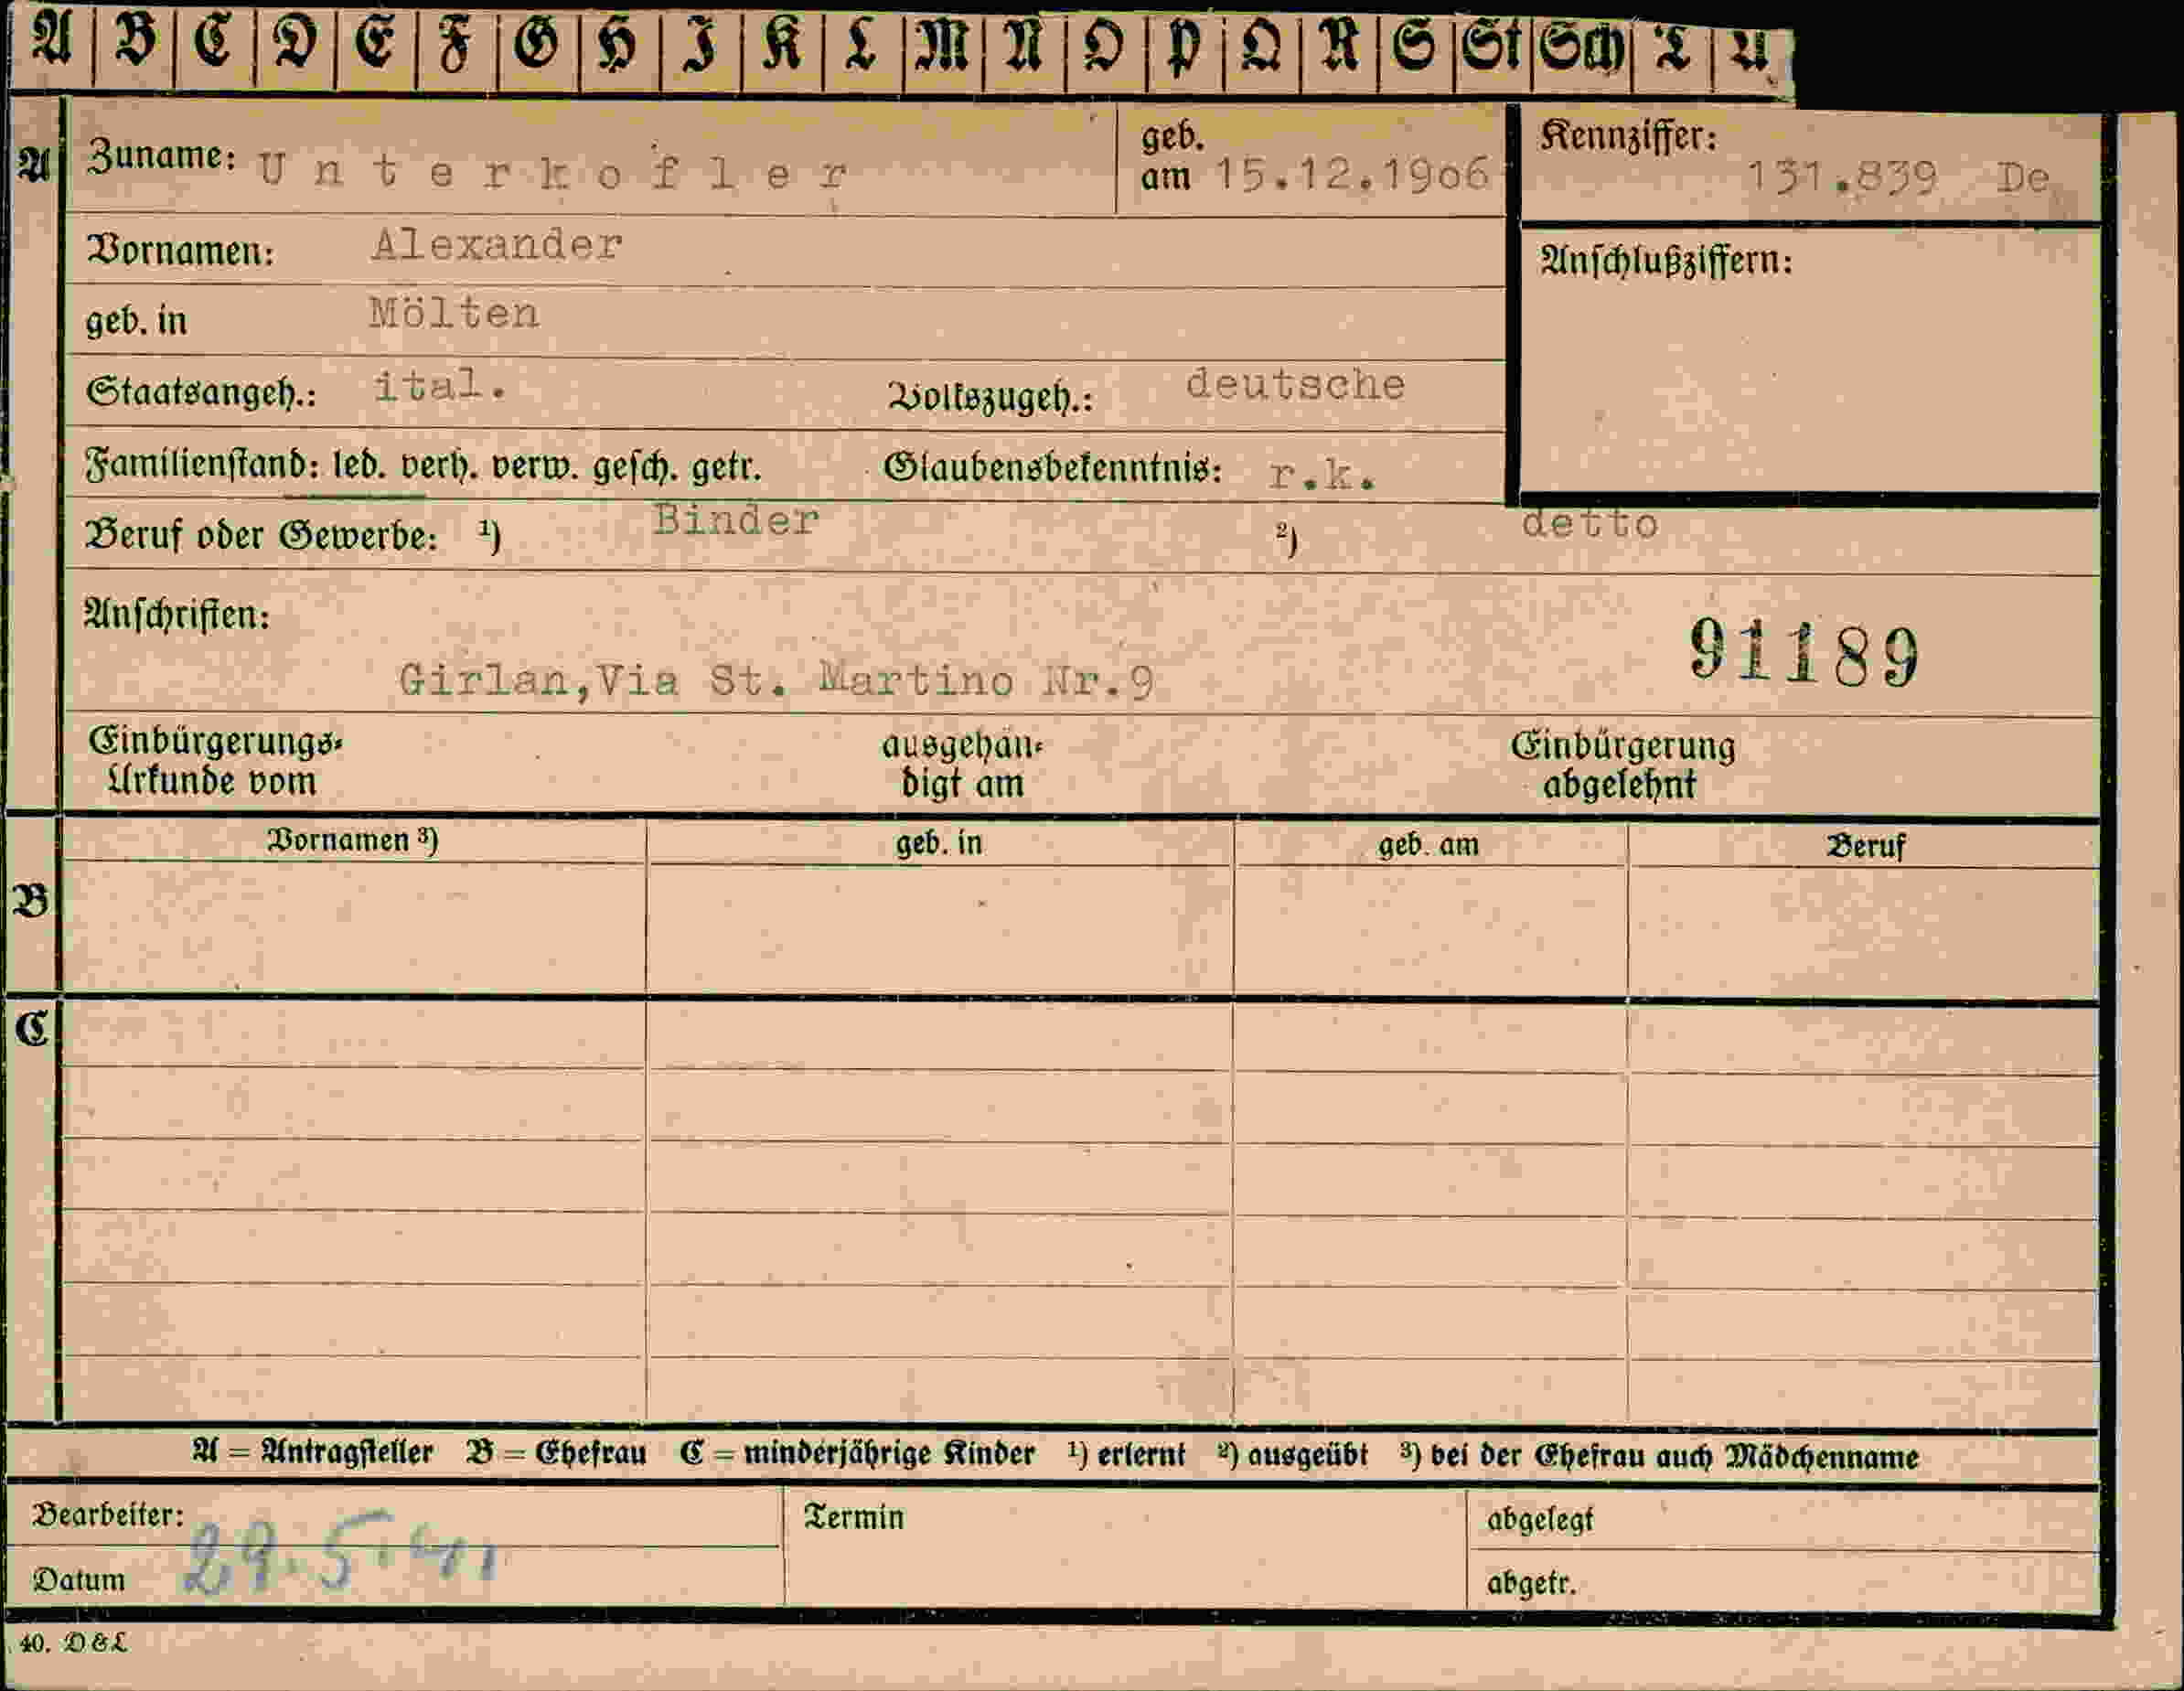 A B C D E F G H I K L M N O P Q R S St Sch T U
A Zuname: Unterkofler geb. am 15.12.1906 Kennziffer: 131.839 De
Vornamen: Alexander Anschlußziffern:
geb. in Mölten
Staatsangeh.: ital. Volkszugeh.: deutsche
Familienstand: led. verh. verw. gesch. getr. Glaubensbekenntnis: r.k.
Beruf oder Gewerbe: 1) Binder 2) detto
Anschriften:
91189
Girlan,Via St. Martino Nr.9
Einbürgerungs- ausgehän- Einbürgerung
Urkunde vom digt am abgelehnt
Vornamen 3) geb. in geb. am Beruf
B
C
A = Antragsteller B = Ehefrau C = minderjährige Kinder 1) erlernt 2) ausgeübt 3) bei der Ehefrau auch Mädchenname
Bearbeiter: Termin abgelegt
29.5.41
Datum abgetr.
40. D&L